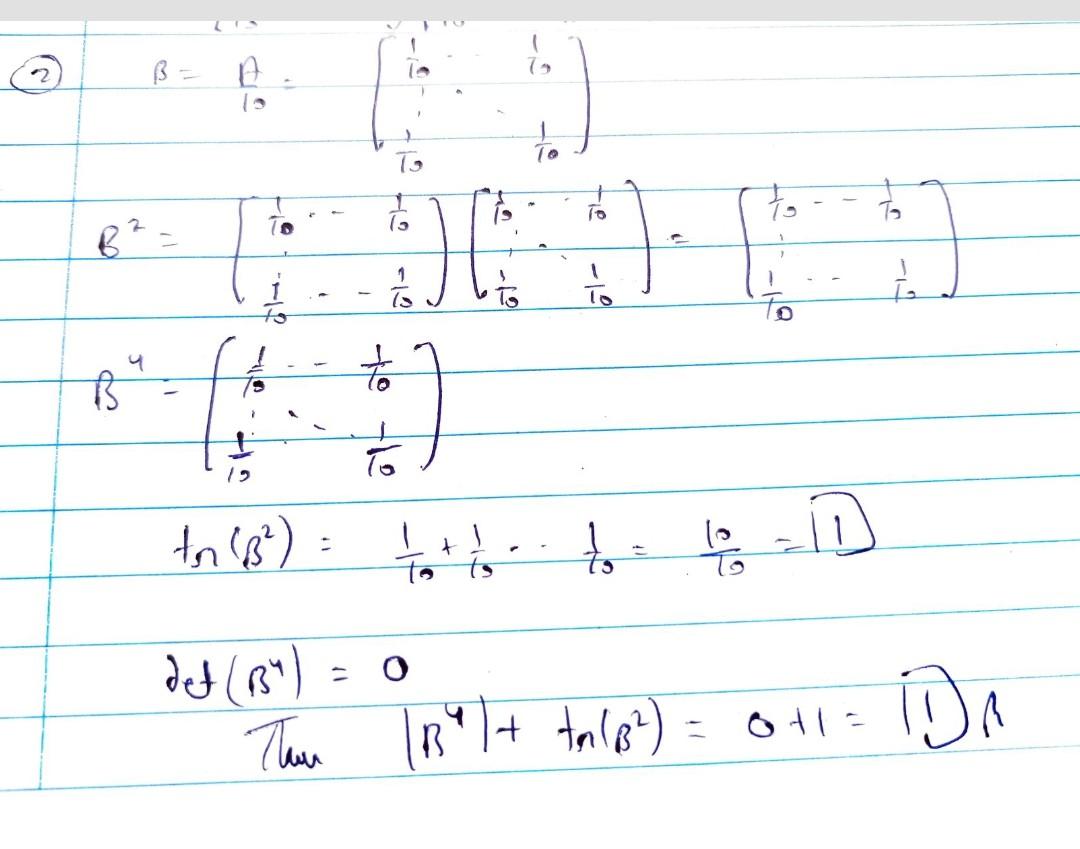 ② B = A/10 = [1/10 - - 1/10 ⋮ ⋱ 1/10 1/10]
B² = [1/10 - - 1/10 ⋮ 1/10 - - 1/10] [1/10 - - 1/10 ⋮ ⋱ 1/10 1/10] = [1/10 - - 1/10 ⋮ 1/10 - - 1/10]
B⁴ = [1/10 - - 1/10 ⋮ ⋱ 1/10 1/10]
tr(B²) = 1/10 + 1/10 - - 1/10 = 10/10 = 1
det(B⁴) = 0
Then |B⁴| + tr(B²) = 0 + 1 = 1